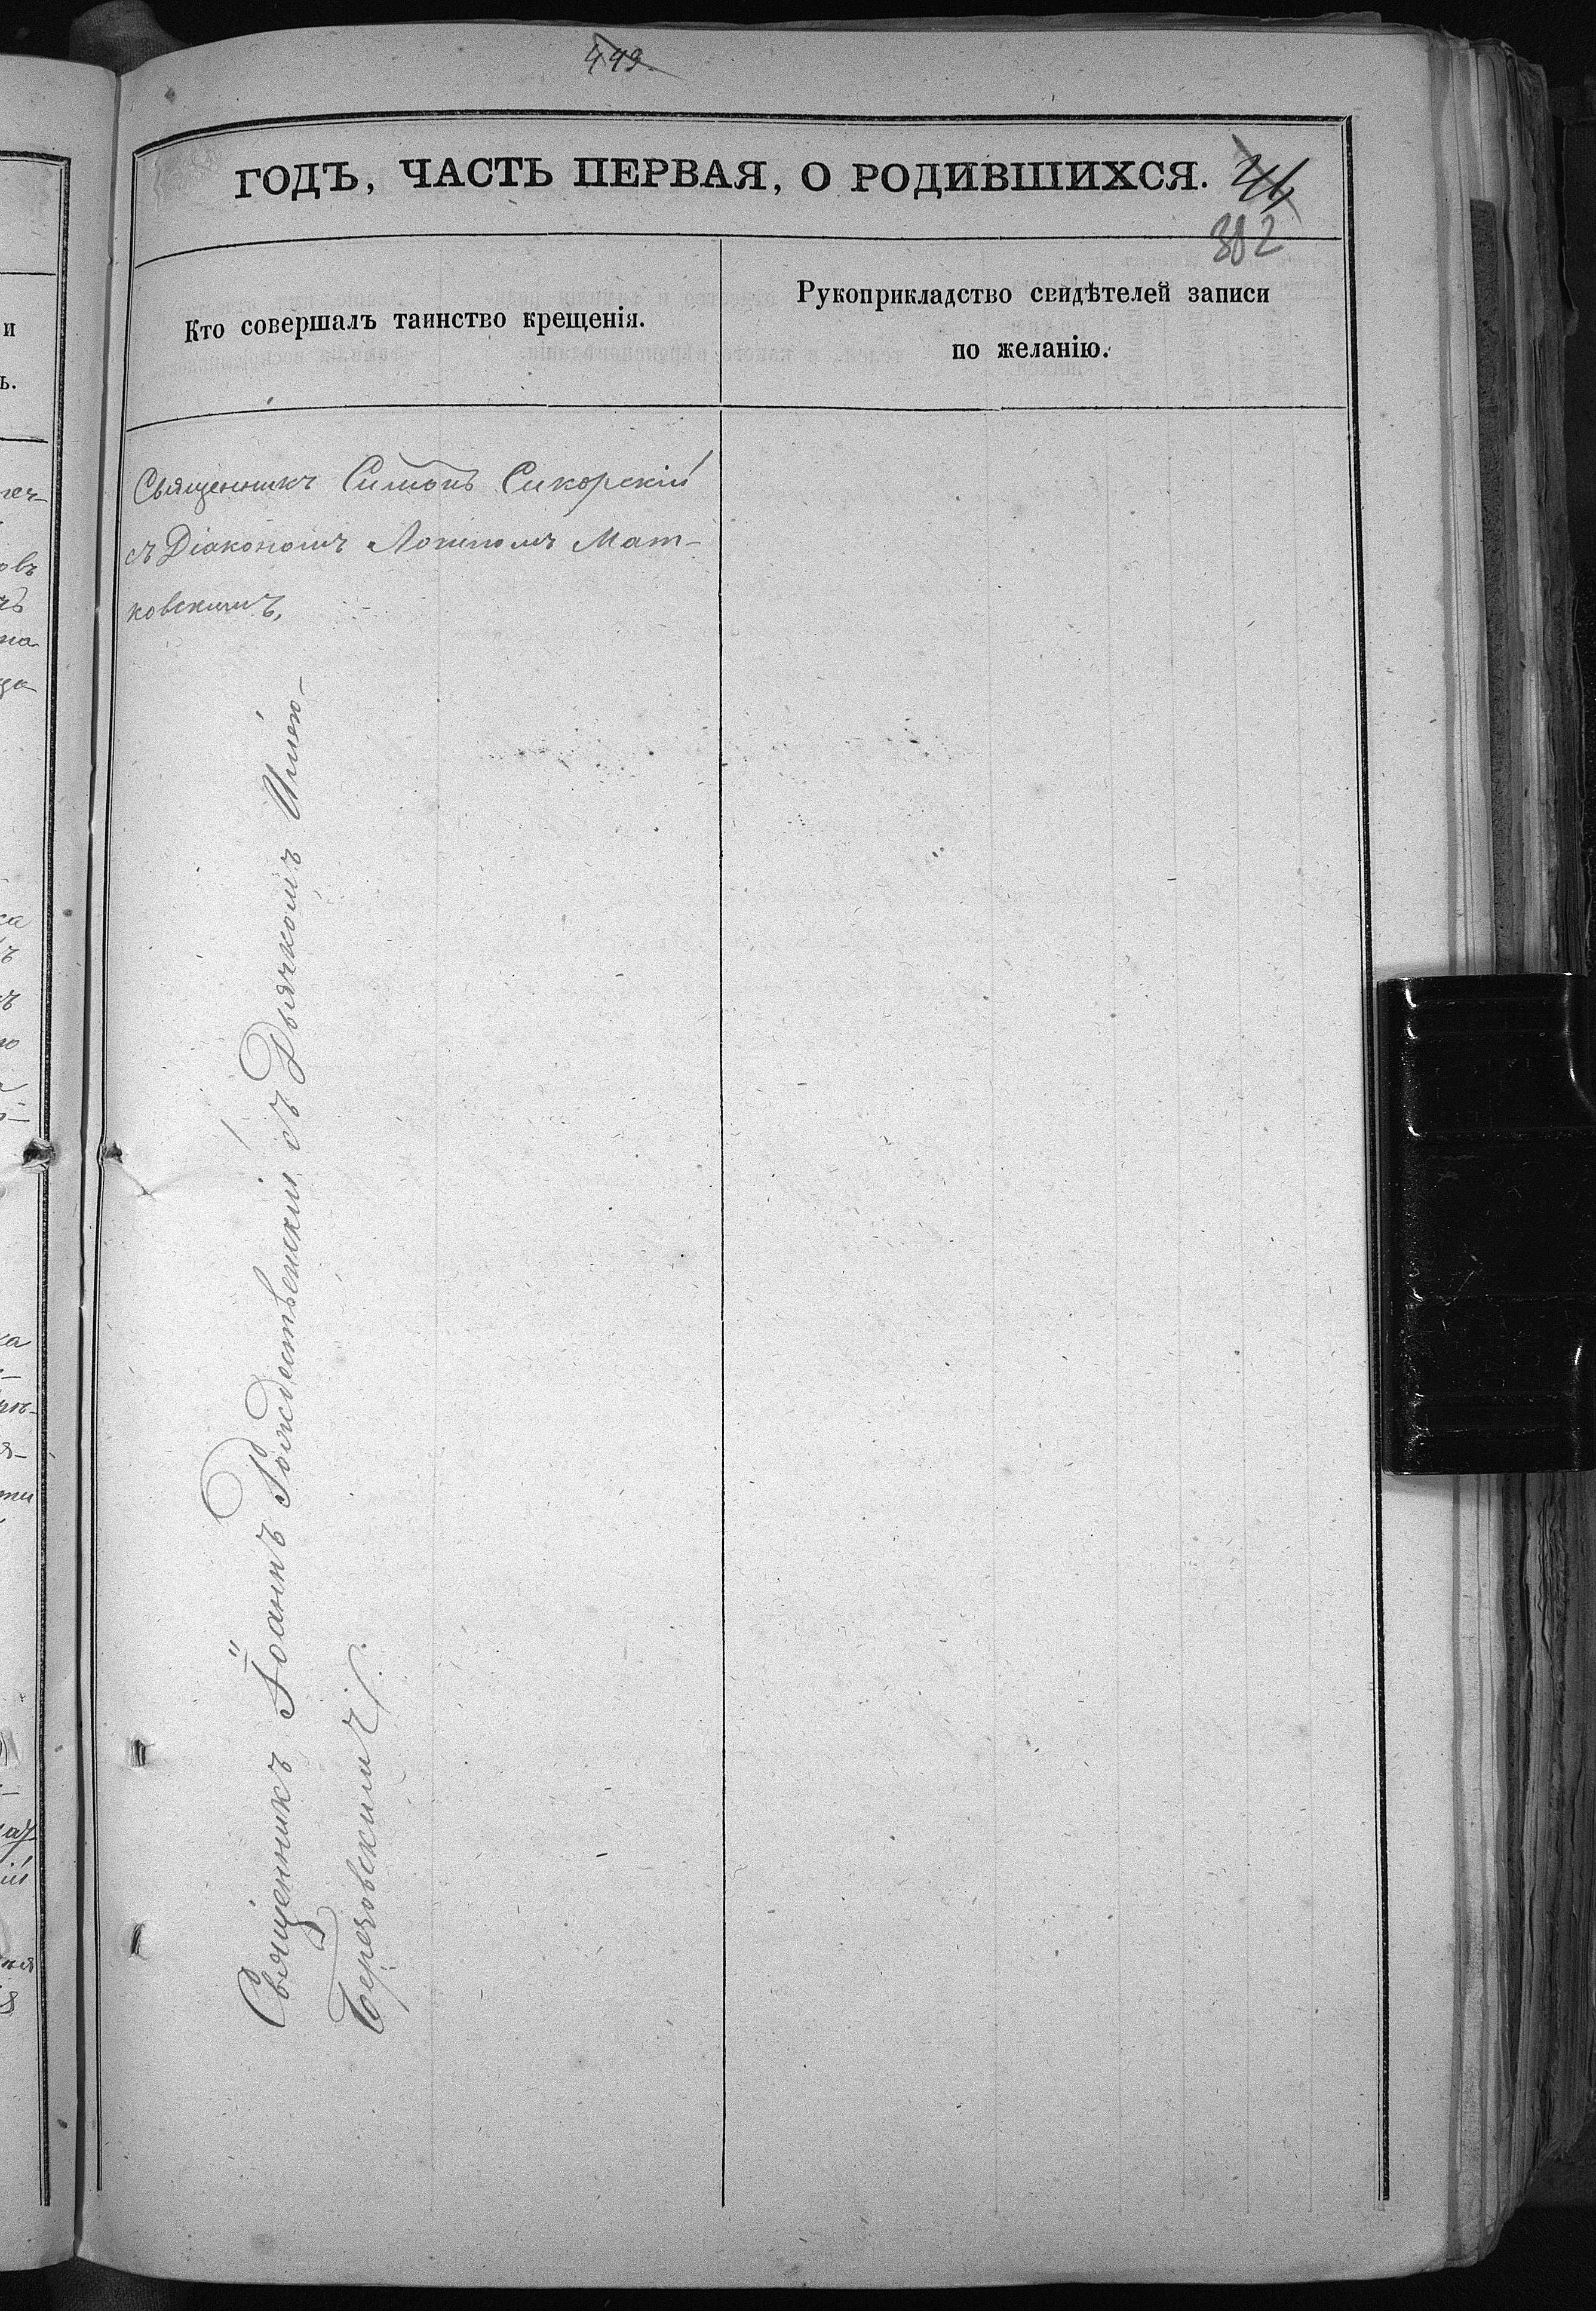 449.
ГОДЪ, ЧАСТЬ ПЕРВАЯ, О РОДИВШИХСЯ.
302
Кто совершалъ таинство крещенія.
Рукоприкладство свидѣтелей записи
по желанію.
Священникъ Симонъ Сикорскій
съ Діакономъ Логиномъ Мат-
ковскимъ,
Священникъ Іоаннъ Рождественскій съ Дьячкомъ
Березовскимъ.